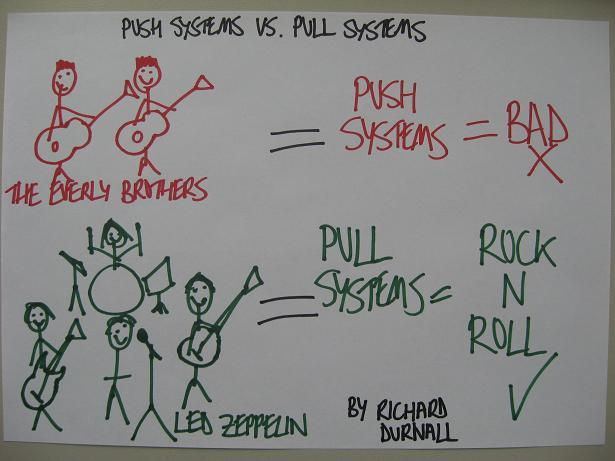 PUSH SYSTEMS VS. PULL SYSTEMS
THE EVERLY BROTHERS
=
PUSH
SYSTEMS
= BAD
X
LED ZEPPELIN
=
PULL
SYSTEMS =
ROCK
N
ROLL
✓
BY RICHARD
DURNALL